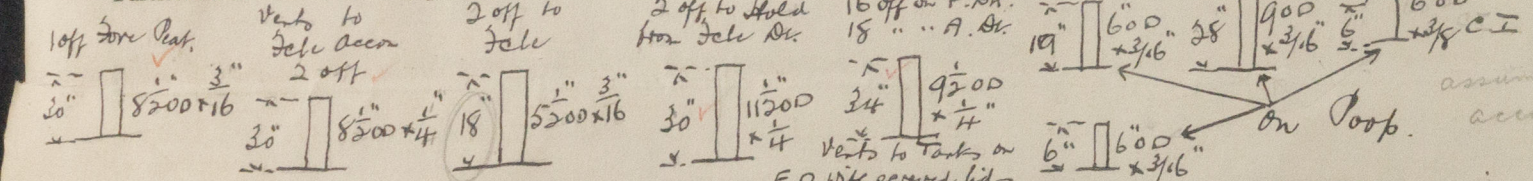 1 off Fore Peak.
30"
8½" OD × 3/16"
Vents to
Fcle Accom
2 off
30"
8½" OD × ¼"
2 off to
Fcle
18"
5½" OD × 3/16"
2 off to Hold
from Fcle Dk.
30"
11½ OD
× ¼"
18 " " A. Dk.
34"
9½ OD
× ¼"
Vents to Tanks on
19"
6" OD
× 3/16"
28"
9 OD
× 3/16"
6"
× 3/8 C I
on Poop.
6"
6" OD
× 3/16"